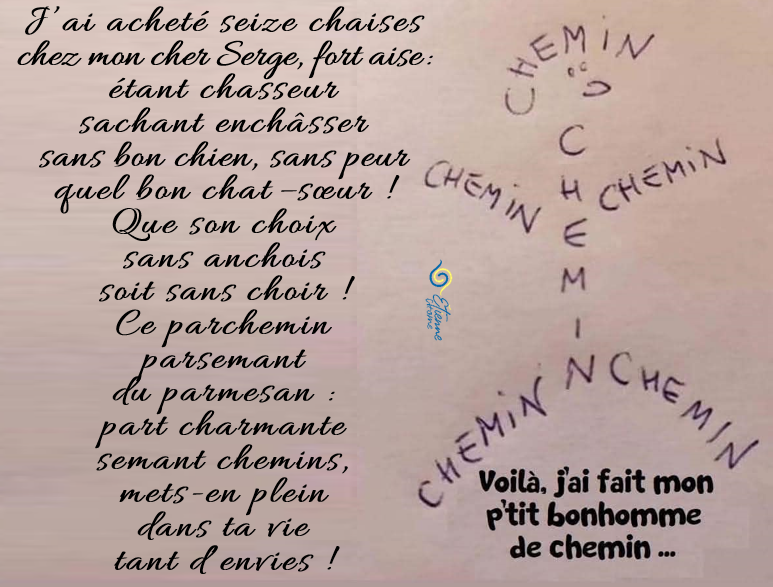 J'ai acheté seize chaises
chez mon cher Serge, fort aise:
étant chasseur
sachant enchâsser
sans bon chien, sans peur
quel bon chat-sœur !
Que son choix
sans anchois
soit sans choir !
Ce parchemin
parsemant
du parmesan :
part charmante
semant chemins,
mets-en plein
dans ta vie
tant d'envies !
Etienne
CHEMIN
CHEMIN
CHEMIN
CHEMIN
CHEMIN
CHEMIN
Voilà, j'ai fait mon
p'tit bonhomme
de chemin ...